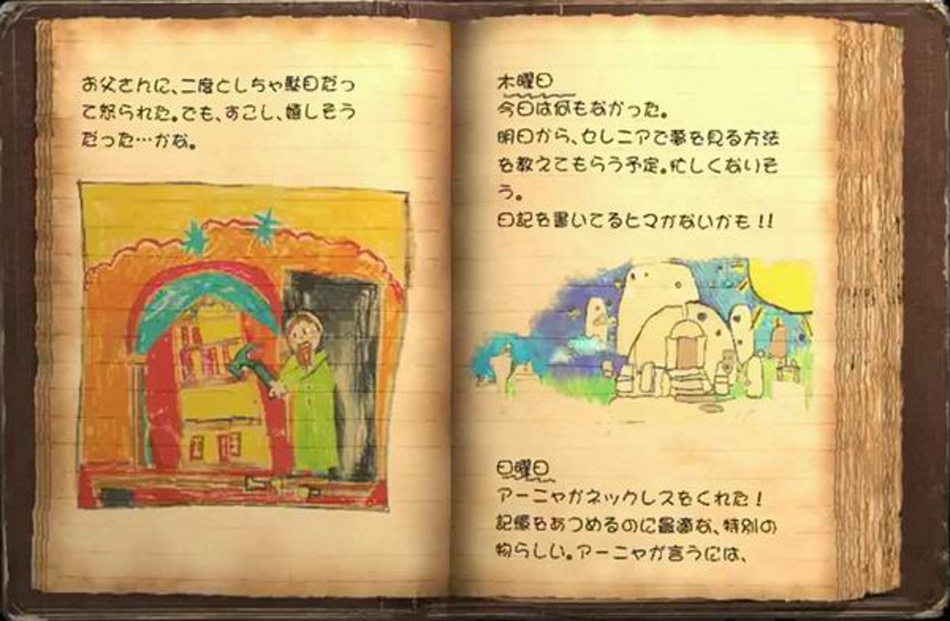 お父さんに、二度としちゃ駄目だっ
て怒られた。でも、すこし、嬉しそう
だった…かな。
木曜日
今日は何もなかった。
明日から、セレニアで夢を見る方法
を教えてもらう予定。忙しくなりそ
う。
日記を書いてるヒマがないかも!!
日曜日
アーニャがネックレスをくれた!
記憶をあつめるのに最適な、特別の
物らしい。アーニャが言うには、